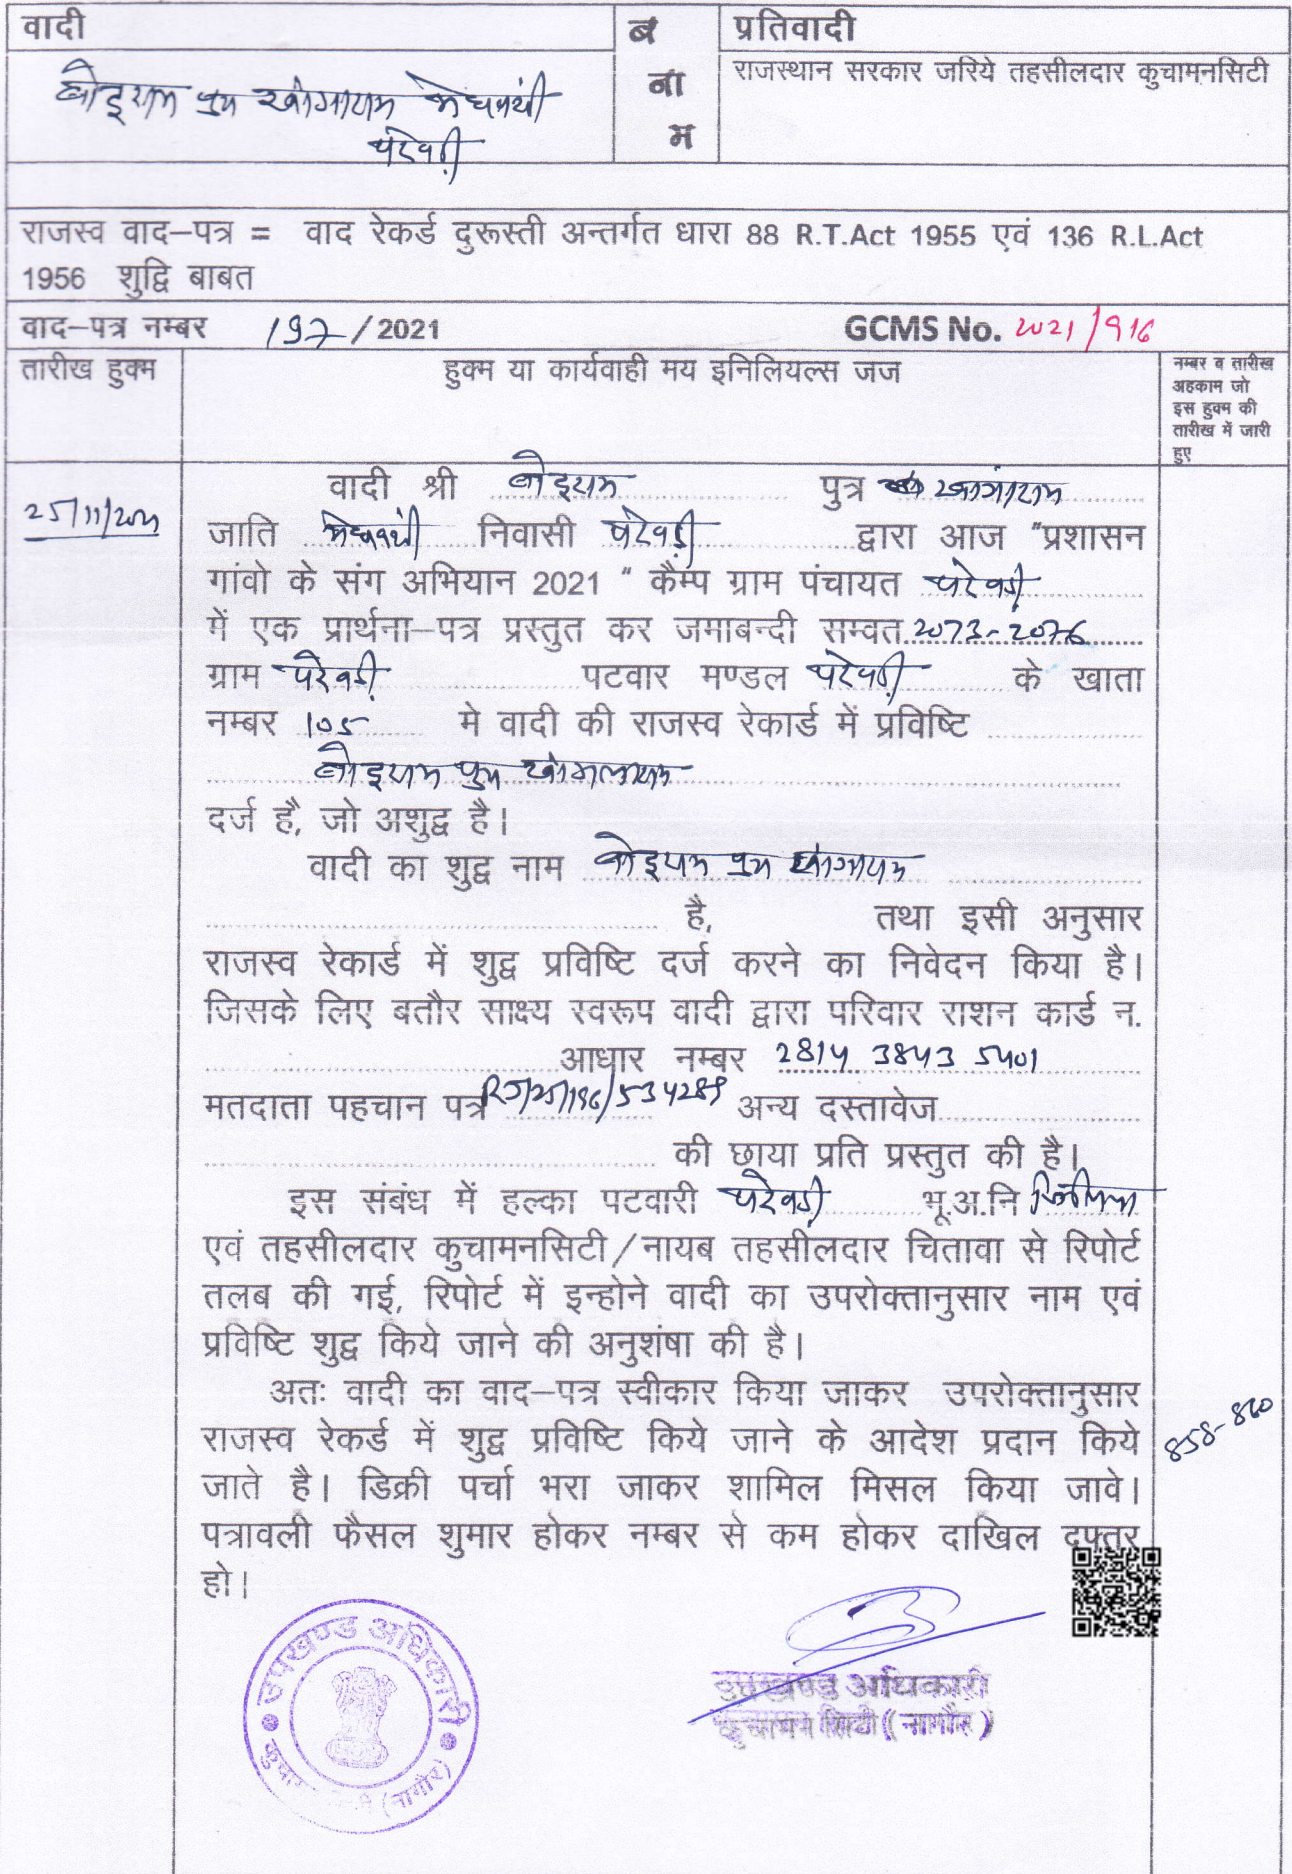 वादी
ब
ना
म
प्रतिवादी
राजस्थान सरकार जरिये तहसीलदार कुचामनसिटी
परेवड़ी
राजस्व वाद–पत्र = वाद रेकर्ड दुरूस्ती अन्तर्गत धारा 88 R.T.Act 1955 एवं 136 R.L.Act
1956 शुद्वि बाबत
वाद–पत्र नम्बर 197/2021 GCMS No. 2021/916
तारीख हुक्म
हुक्म या कार्यवाही मय इनिलियल्स जज
नम्बर व तारीख
अहकाम जो
इस हुक्म की
तारीख में जारी
हुए
25/11/2021
वादी श्री पुत्र
जाति निवासी परेवड़ी द्वारा आज "प्रशासन
गांवो के संग अभियान 2021 " कैम्प ग्राम पंचायत परेवड़ी
में एक प्रार्थना–पत्र प्रस्तुत कर जमाबन्दी सम्वत 2073-2076
ग्राम परेवड़ी पटवार मण्डल परेवड़ी के खाता
नम्बर 105 मे वादी की राजस्व रेकार्ड में प्रविष्टि
पुत्र
दर्ज है, जो अशुद्व है।
वादी का शुद्व नाम पुत्र
है, तथा इसी अनुसार
राजस्व रेकार्ड में शुद्व प्रविष्टि दर्ज करने का निवेदन किया है।
जिसके लिए बतौर साक्ष्य स्वरूप वादी द्वारा परिवार राशन कार्ड न.
आधार नम्बर 2814 3843 5401
मतदाता पहचान पत्र RJ/25/196/534289 अन्य दस्तावेज
की छाया प्रति प्रस्तुत की है।
इस संबंध में हल्का पटवारी परेवड़ी भू.अ.नि
एवं तहसीलदार कुचामनसिटी/नायब तहसीलदार चितावा से रिपोर्ट
तलब की गई, रिपोर्ट में इन्होने वादी का उपरोक्तानुसार नाम एवं
प्रविष्टि शुद्व किये जाने की अनुशंषा की है।
अतः वादी का वाद–पत्र स्वीकार किया जाकर उपरोक्तानुसार
राजस्व रेकर्ड में शुद्व प्रविष्टि किये जाने के आदेश प्रदान किये
जाते है। डिक्री पर्चा भरा जाकर शामिल मिसल किया जावे।
पत्रावली फैसल शुमार होकर नम्बर से कम होकर दाखिल दफ्तर
हो।
858-860
उपखण्ड अधिकारी
(नागौर)
उपखण्ड अधिकारी
कुचामन सिटी (नागौर)